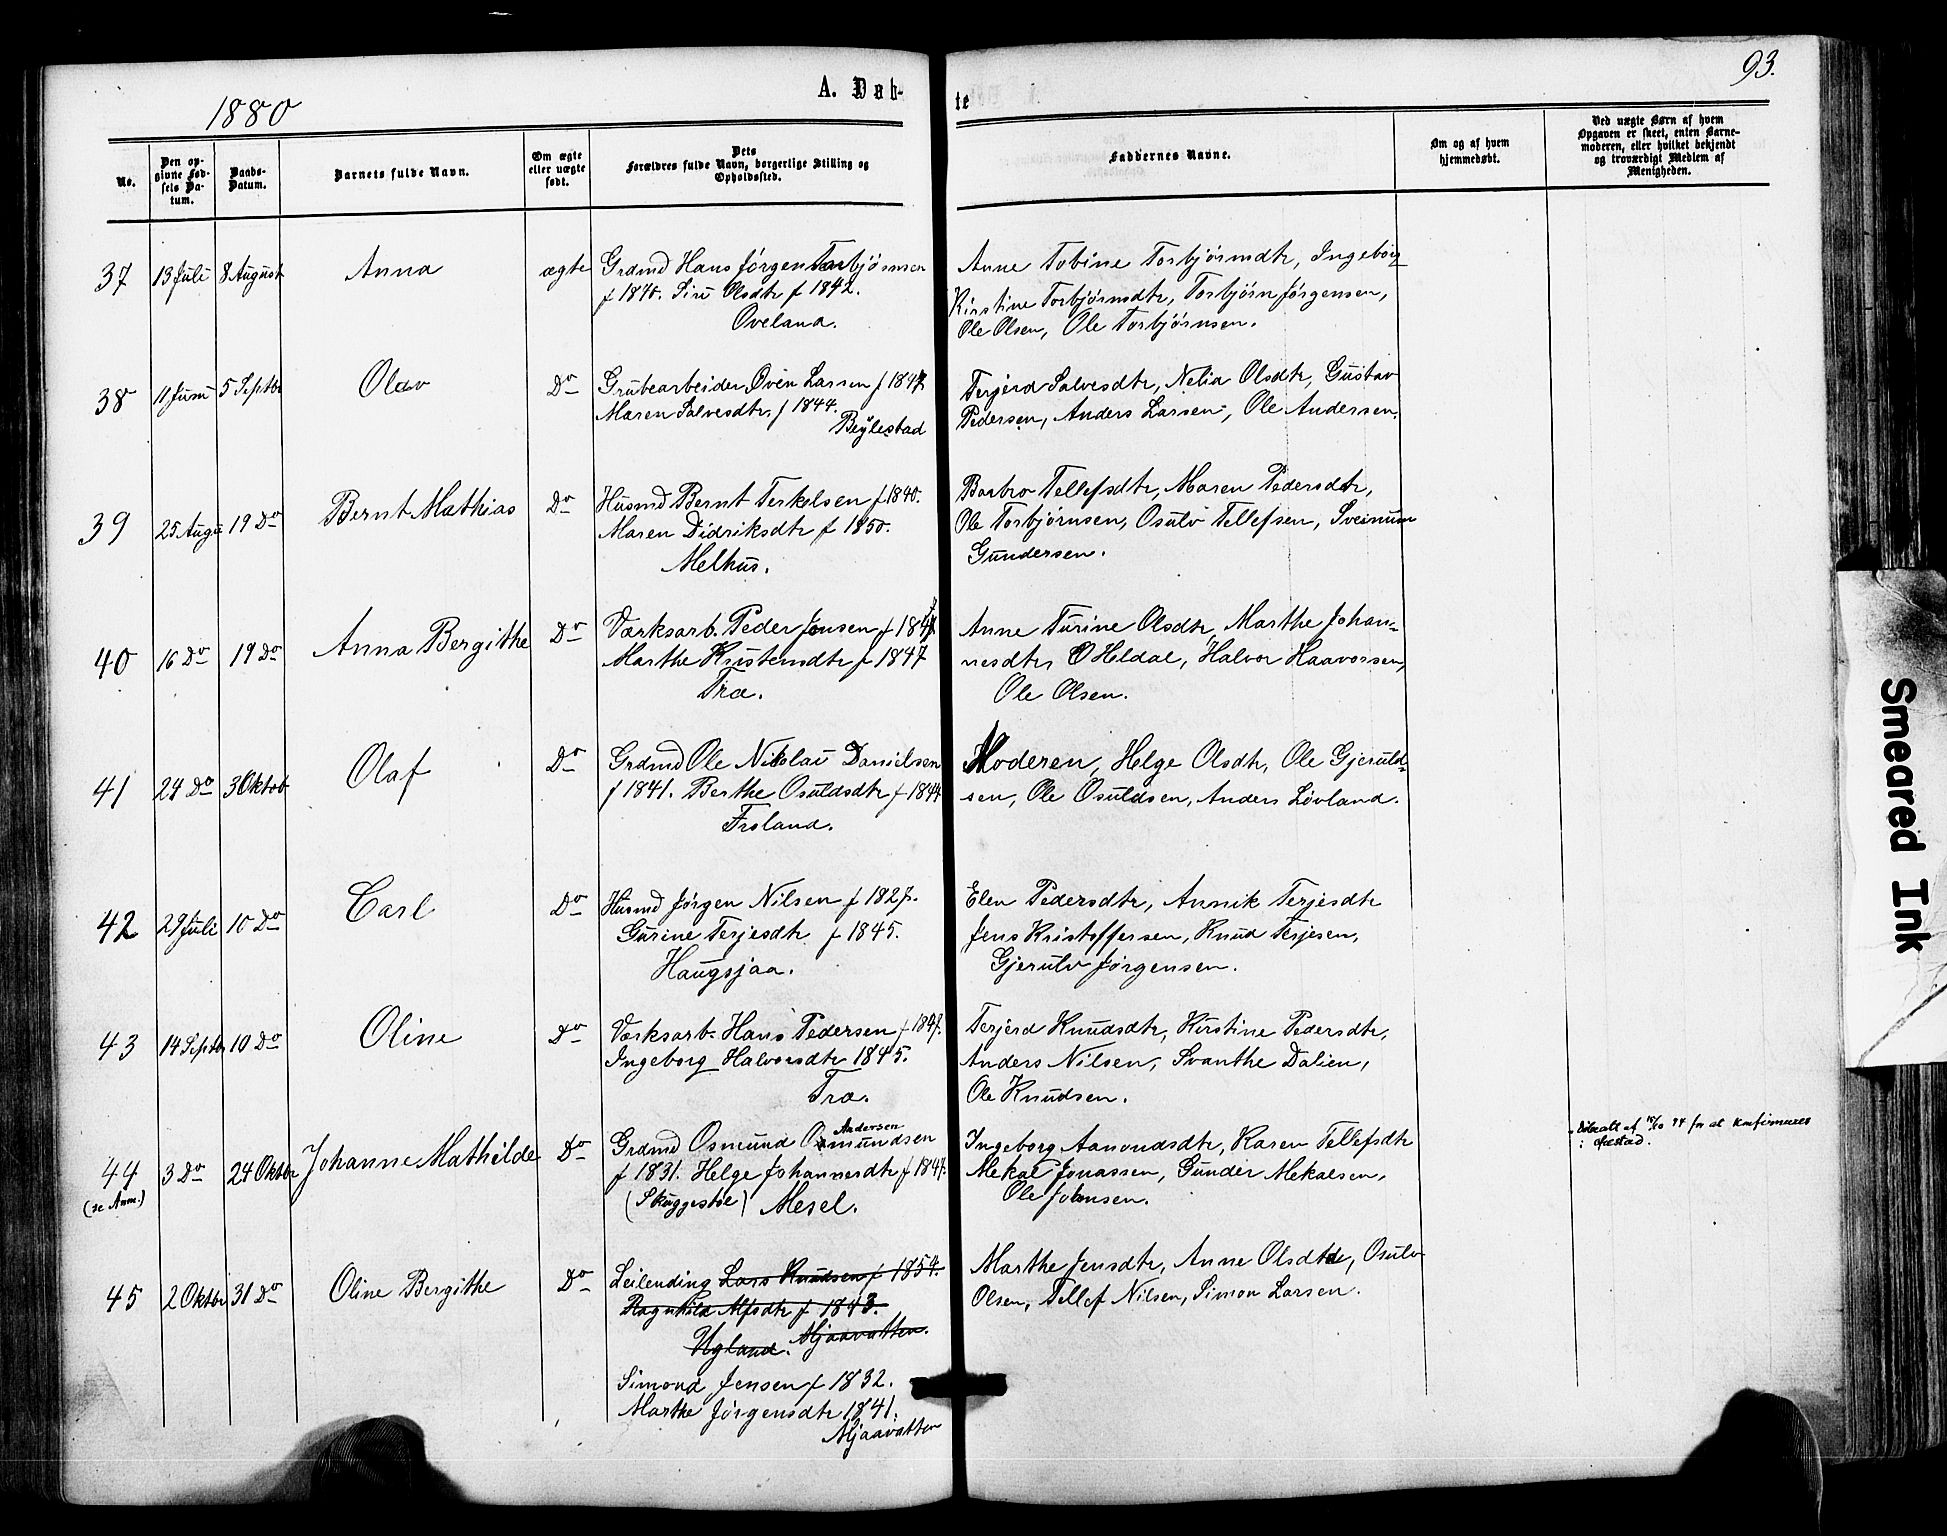 93.
1880
A. Døb-
te
No.
Den op-
givne Fød-
sels Da-
tum.
Daabs-
Datum.
Barnets fulde Navn.
Om ægte
eller uægte
født.
Dets
Forældres fulde Navn, borgerlige Stilling og
Opholdssted.
Faddernes Navne.
Om og af hvem
hjemmedøbt.
Ved uægte Børn af hvem
Opgaven er skeet, enten Barne-
moderen, eller hvilket bekjendt
og troværdigt Medlem af
Menigheden.
37 13 Juli 8 August Anna ægte
Grdmd Hans Jørgen Torbjørnsen
f 1840. Siri Olsdtr f 1842.
Oveland.
Anne Tobine Torbjørnsdtr, Ingeborg
Kirstine Torbjørnsdtr, Torbjørn Jørgensen,
Ole Olsen, Ole Torbjørnsen.
38 11 Juni 5 Septbr Olav Do
Grubearbeider Øven Larsen f 1847
Maren Salvesdtr. f 1844.
Bøylestad
Terjerd Salvesdtr, Nelia Olsdtr, Gustav
Pedersen, Anders Larsen, Ole Andersen.
39 25 Augu 19 Do Bernt Mathias Do
Husmd Bernt Terkelsen f 1840.
Maren Didriksdtr f 1850.
Melhus.
Barbro Tellefsdtr, Maren Pedersdtr,
Ole Torbjørnsen, Osulv Tellefsen, Sveinum
Gundersen.
40 16 Do 19 Do Anna Bergithe Do
Værksarb. Peder Jensen f 1847
Marthe Kristensdtr f 1847
Træ.
Anne Turine Olsdtr, Marthe Johan-
nesdtr, O Heldal, Halvor Haavorsen,
Ole Olsen.
41 24 Do 3 Oktob Olaf Do
Grdmd Ole Nikolai Danielsen
f 1841. Berthe Osuldsdtr f 1844
Froland.
Moderen, Helge Olsdtr, Ole Gjeruld-
sen, Ole Osuldsen, Anders Løvland.
42 29 Juli 10 Do Carl Do
Husmd Jørgen Nilsen f 1827.
Gurine Terjesdtr f 1845.
Haugsjaa.
Elen Pedersdtr, Annik Terjesdtr
Jens Kristoffersen, Knud Terjesen,
Gjerulv Jørgensen.
43 14 Septbr 10 Do Oline Do
Værksarb. Hans Pedersen f 1847.
Ingeborg Halvorsdtr 1845.
Træ.
Terjerd Knudsdtr, Kirstine Pedersdtr,
Anders Nilsen, Svanthe Dalien,
Ole Knudsen.
44 3 Do 24 Oktbr Johanne Mathilde Do
(se Anm.)
Andersen
Grdmd Osmund Osmundsen
f 1831. Helge Johannesdtr f 1847.
(Skuggestøl) Mesel.
Ingeborg Aanonsdtr, Karen Tellefsdtr
Mekal Jonassen, Gunder Mekalsen,
Ole Johnsen.
af 94 for at konfirmeres
i Øiestad.
45 2 Oktbr 31 Do Oline Bergithe Do
Leilending Lars Knudsen f 1854.
Ragnhild Alfsdtr f 1843.
Ugland. Mjaavatten.
Simond Jensen f 1832.
Marthe Jørgensdtr 1841.
Mjaavatten
Marthe Jensdtr, Anne Olsdtr, Osulv
Olsen, Tellef Nilsen, Simon Larsen.
Smeared Ink